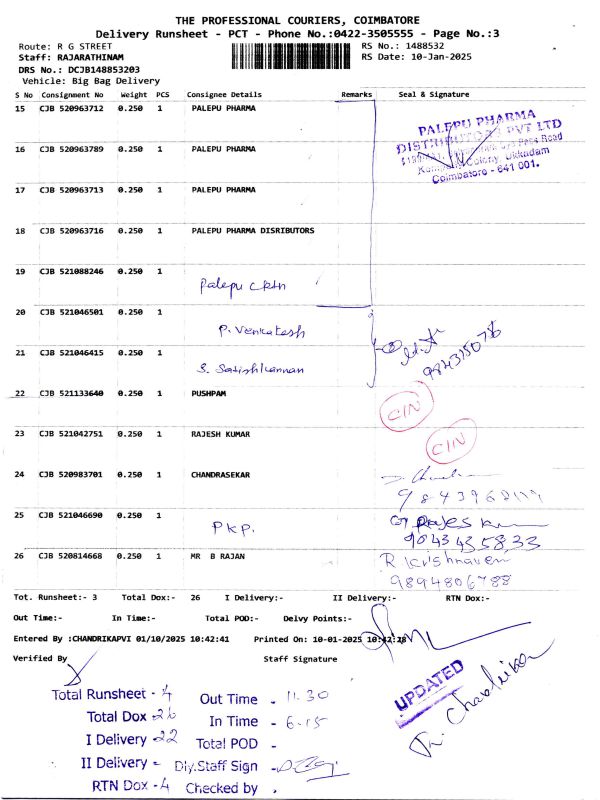 THE PROFESSIONAL COURIERS, COIMBATORE
Delivery Runsheet - PCT - Phone No.:0422-3505555 - Page No.:3
Route: R G STREET RS No.: 1488532
Staff: RAJARATHINAM RS Date: 10-Jan-2025
DRS No.: DCJB148853203
Vehicle: Big Bag Delivery
S No Consignment No Weight PCS Consignee Details Remarks Seal & Signature
15 CJB 520963712 0.250 1 PALEPU PHARMA
PALEPU PHARMA
DISTRIBUTORS PVT LTD
Colony, Ukkadam
Coimbatore - 641 001.
16 CJB 520963789 0.250 1 PALEPU PHARMA
17 CJB 520963713 0.250 1 PALEPU PHARMA
18 CJB 520963716 0.250 1 PALEPU PHARMA DISRIBUTORS
19 CJB 521088246 0.250 1 Palepu
20 CJB 521046501 0.250 1 P. Venkatesh
21 CJB 521046415 0.250 1 S. Satishkannan
22 CJB 521133640 0.250 1 PUSHPAM C/N
23 CJB 521042751 0.250 1 RAJESH KUMAR C/N
24 CJB 520983701 0.250 1 CHANDRASEKAR
25 CJB 521046690 0.250 1 PKP.
9043435833
26 CJB 520814668 0.250 1 MR B RAJAN R Krishnaveni
9894806788
Tot. Runsheet:- 3 Total Dox:- 26 I Delivery:- II Delivery:- RTN Dox:-
Out Time:- In Time:- Total POD:- Delvy Points:-
Entered By :CHANDRIKAPVI 01/10/2025 10:42:41 Printed On: 10-01-2025 10:42:28
Verified By Staff Signature
UPDATED
Total Runsheet - 4 Out Time - 11.30
Total Dox - 26 In Time - 6.15
I Delivery - 22 Total POD -
II Delivery - Dly.Staff Sign -
RTN Dox - 4 Checked by -